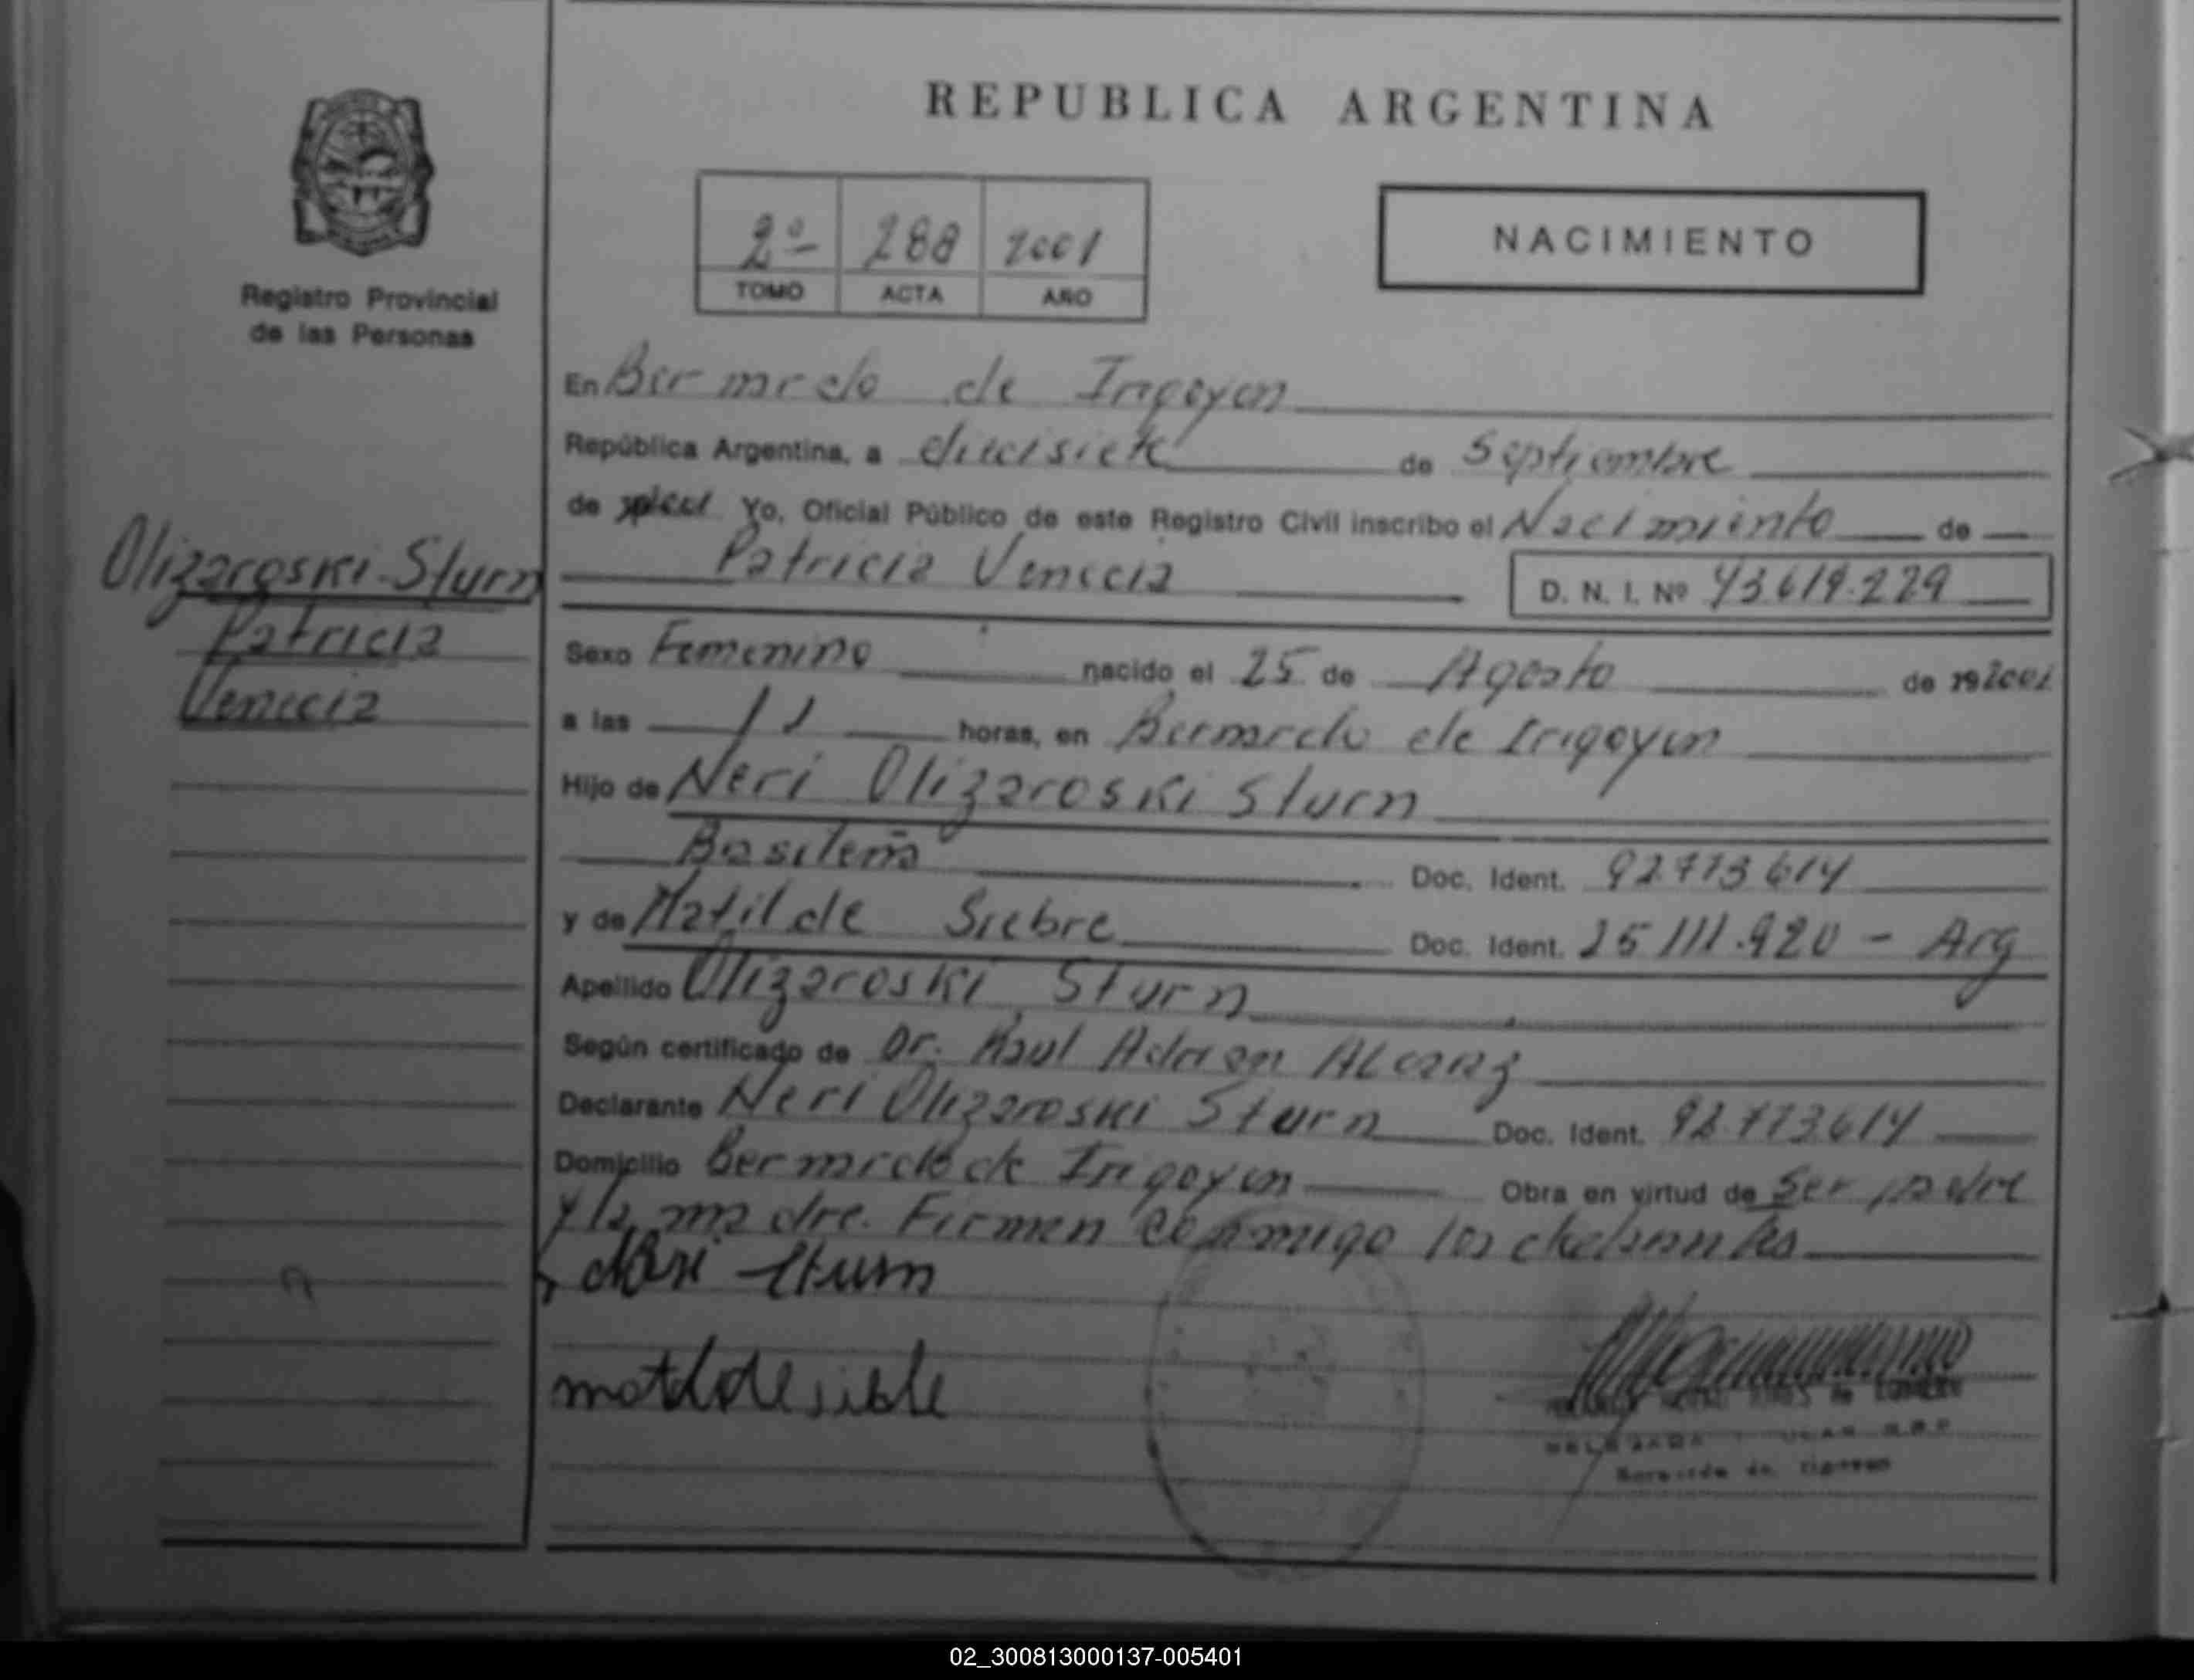 REPUBLICA ARGENTINA
2º 288 2001
TOMO ACTA AÑO
NACIMIENTO
Registro Provincial
de las Personas
Olizaroski Sturn
Patricia
Venecia
En Bernardo de Irigoyen
República Argentina, a diecisiete de Septiembre
de Yo, Oficial Público de este Registro Civil inscribo el Nacimiento de
Patricia Venecia
D. N. I. Nº 43.619.229
Sexo Femenino nacido el 25 de Agosto de 19 2001
a las 11 horas, en Bernardo de Irigoyen
Hijo de Neri Olizaroski Sturn
Basileña Doc. Ident. 92.773.614
y de Matilde Siebre Doc. Ident. 25.111.920 - Arg
Apellido Olizaroski Sturn
Según certificado de Dr. Raul Adrian
Declarante Neri Olizaroski Sturn Doc. Ident. 92.773.614
Domicilio Bernardo de Irigoyen Obra en virtud de Ser padre
y la madre. Firman conmigo los
Neri Sturn
matilde sible
DELEGADA
Bernardo de Irigoyen
02_300813000137-005401